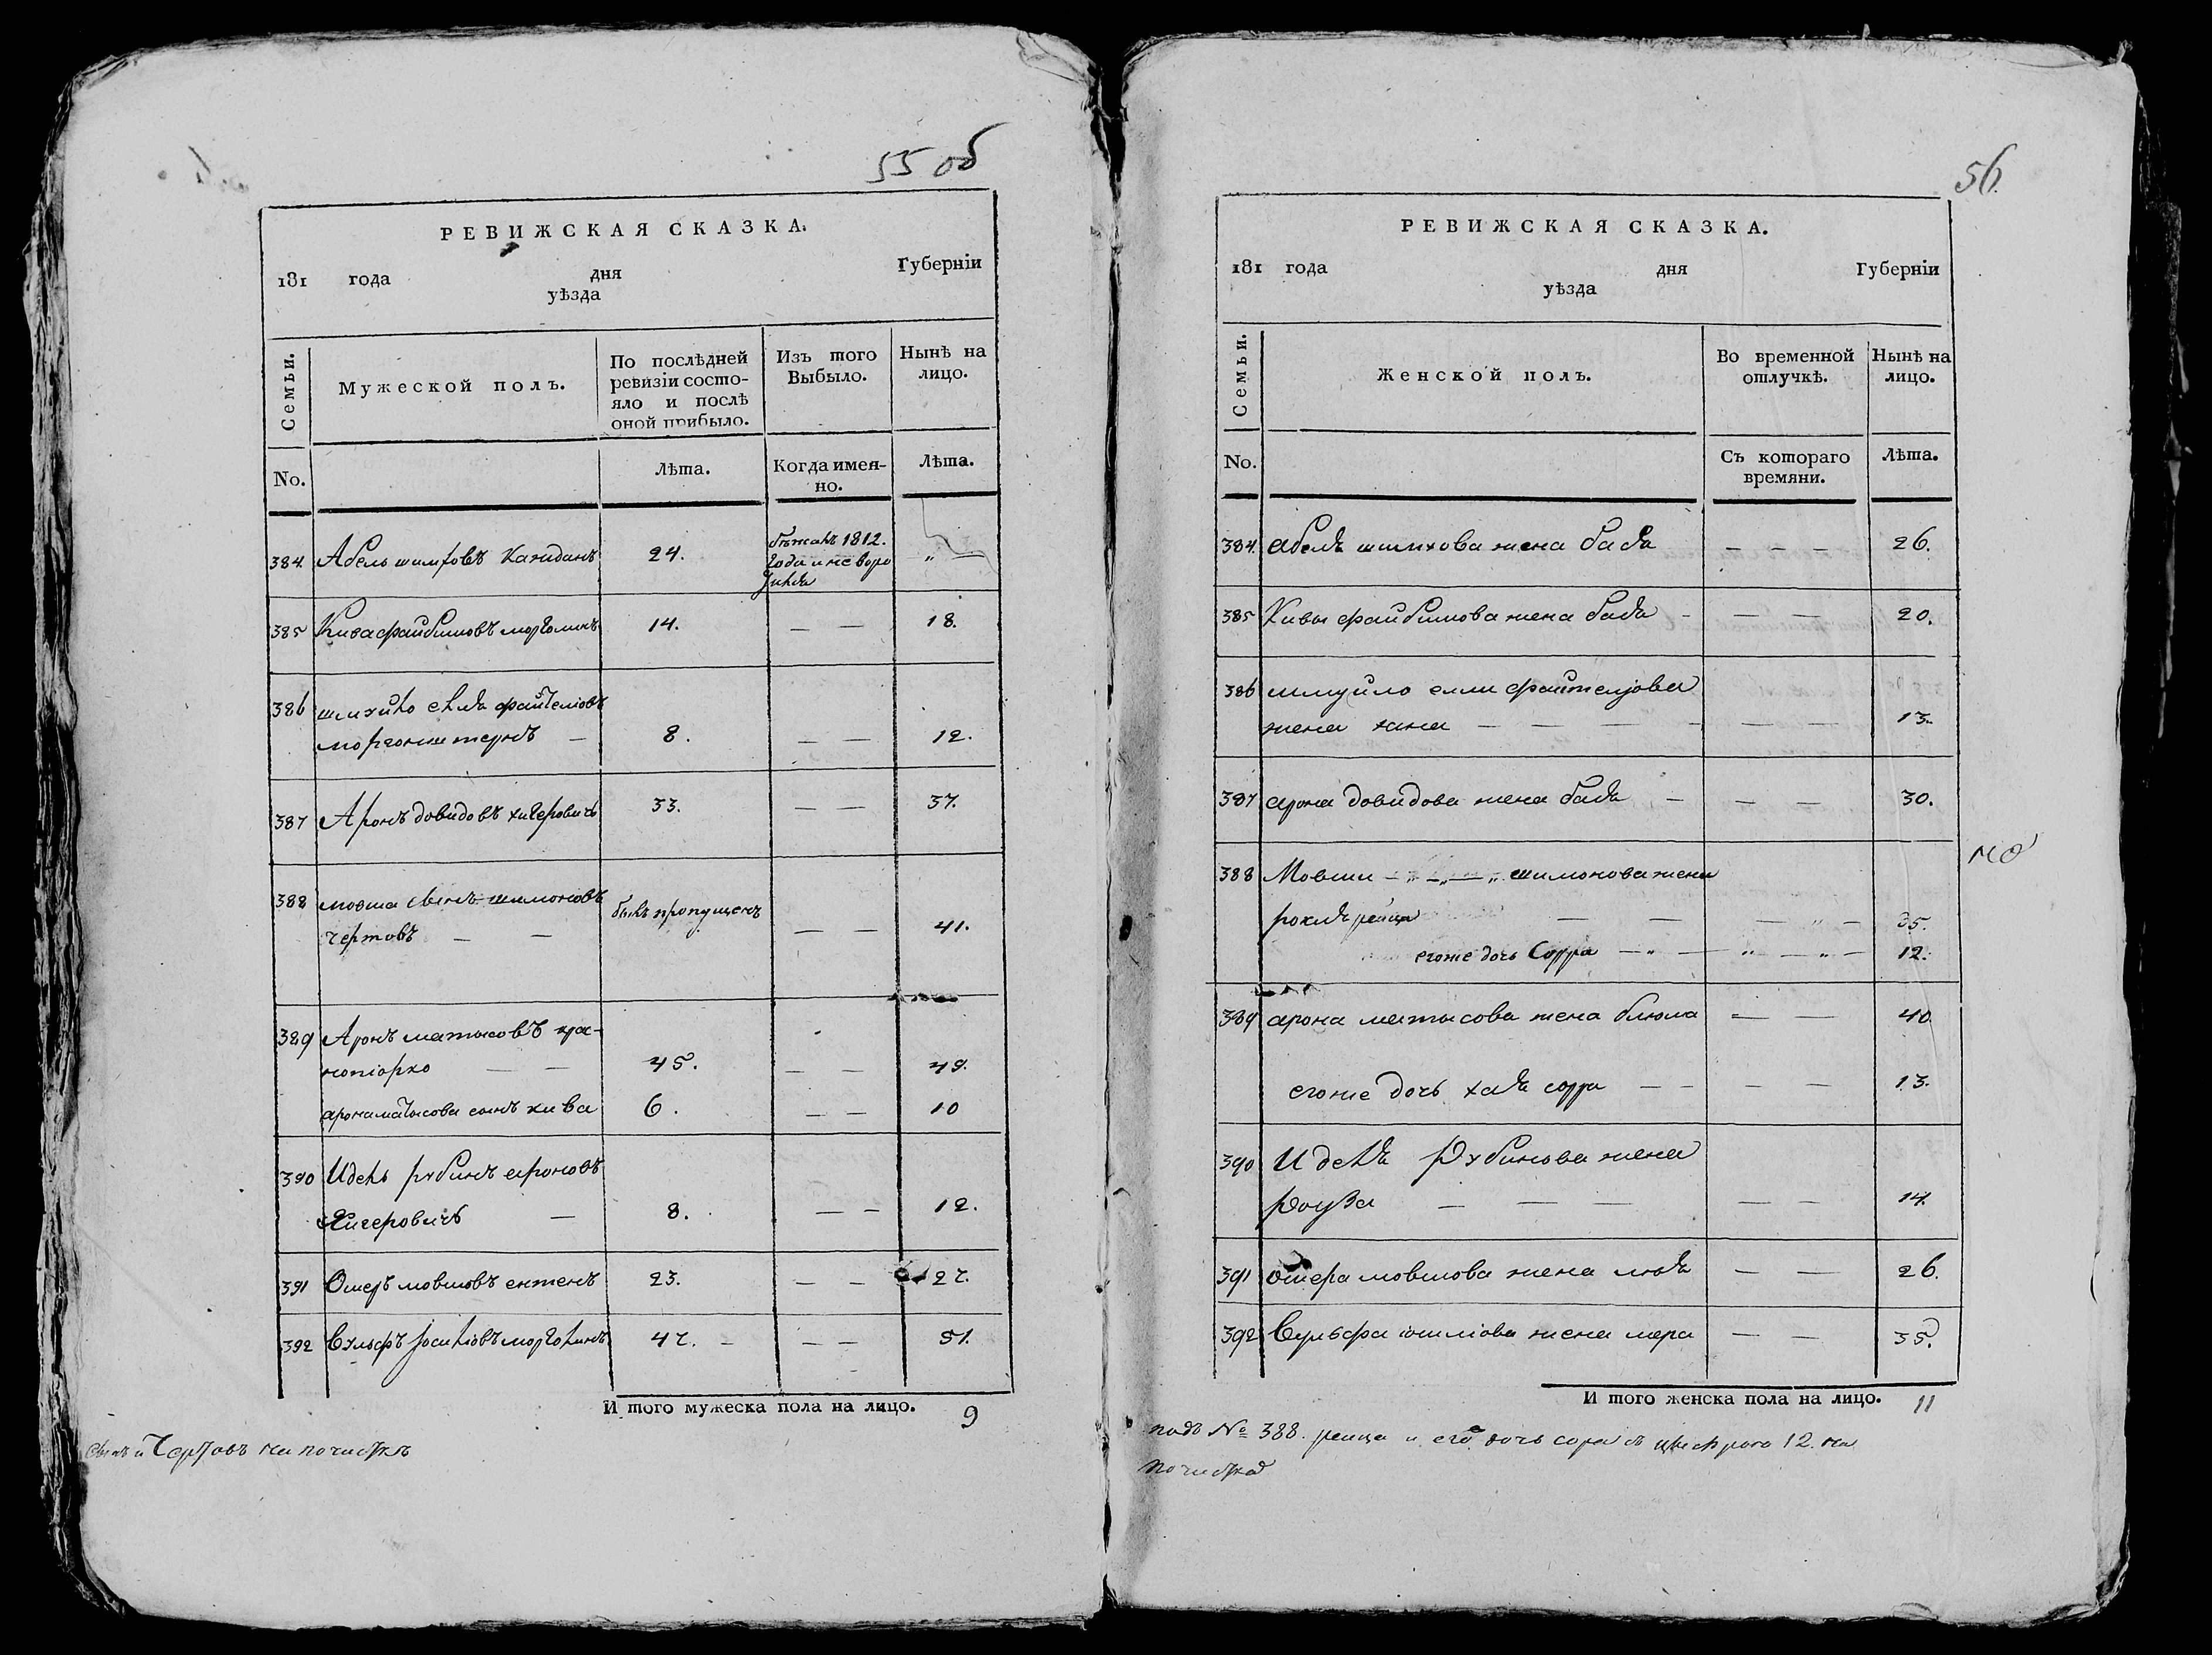 55 об
РЕВИЖСКАЯ СКАЗКА.
181 года дня Губерніи
уѣзда
Семьи.
Мужеской полъ.
По послѣдней
ревизіи состо-
яло и послѣ
оной прибыло.
Изъ того
Выбыло.
Нынѣ на
лицо.
No.
Лѣта.
Когда имен-
но.
Лѣта.
384 Абель шимховъ 24. бѣжалъ 1812.
года и не воро
„ —
385 Кива файбишовъ морголинъ 14. — — 18.
386 файтеліовъ
моргонштернъ — 8. — — 12.
387 Аронъ довидовъ хигеровичъ 33. — — 37.
388 мовша шимоновъ былъ пропущенъ
чертовъ — — — — 41.
389 Аронъ матысовъ кра-
— — 45. — — 49.
арона матысова сынъ кива 6. — — 10
390 Идель рубинъ ароновъ
хигеровичъ — 8. — — 12.
391 Ошеръ мовшовъ ентенъ 23. — — 27.
392 Вульфъ морголинъ 47. — — — 51.
И того мужеска пола на лицо. 9
Чертовъ на почисткѣ
56.
РЕВИЖСКАЯ СКАЗКА.
181 года дня Губерніи
уѣзда
Семьи.
Женской полъ.
Во временной
отлучкѣ.
Нынѣ на
лицо.
No.
Съ котораго
времяни.
Лѣта.
384. абеля шимхова жена бася — — — 26.
385 Кивы файбишова жена бася — — — 20.
386 шмуйло елли файтелјова
жена хана — — — — — — 13.
387 арона довидова жена бася — — — 30.
388 Мовши — „ — „ — „ шимонова жена
рохля рейца — — — „ — 35.
егоже дочь Сорра — „ — „ — „ — 12.
389 арона матысова жена блюма — — 40
егоже дочь хая сорра — — — — 13.
390 Иделя Рубинова жена
Роуза — — — — — 14.
391 ошера мовшова жена — — 26.
392 Вульфа жена мера — — 35.
И того женска пола на лицо. 11
подъ № 388. рейца и его дочь сора съ цыфрою 12. на
почистке